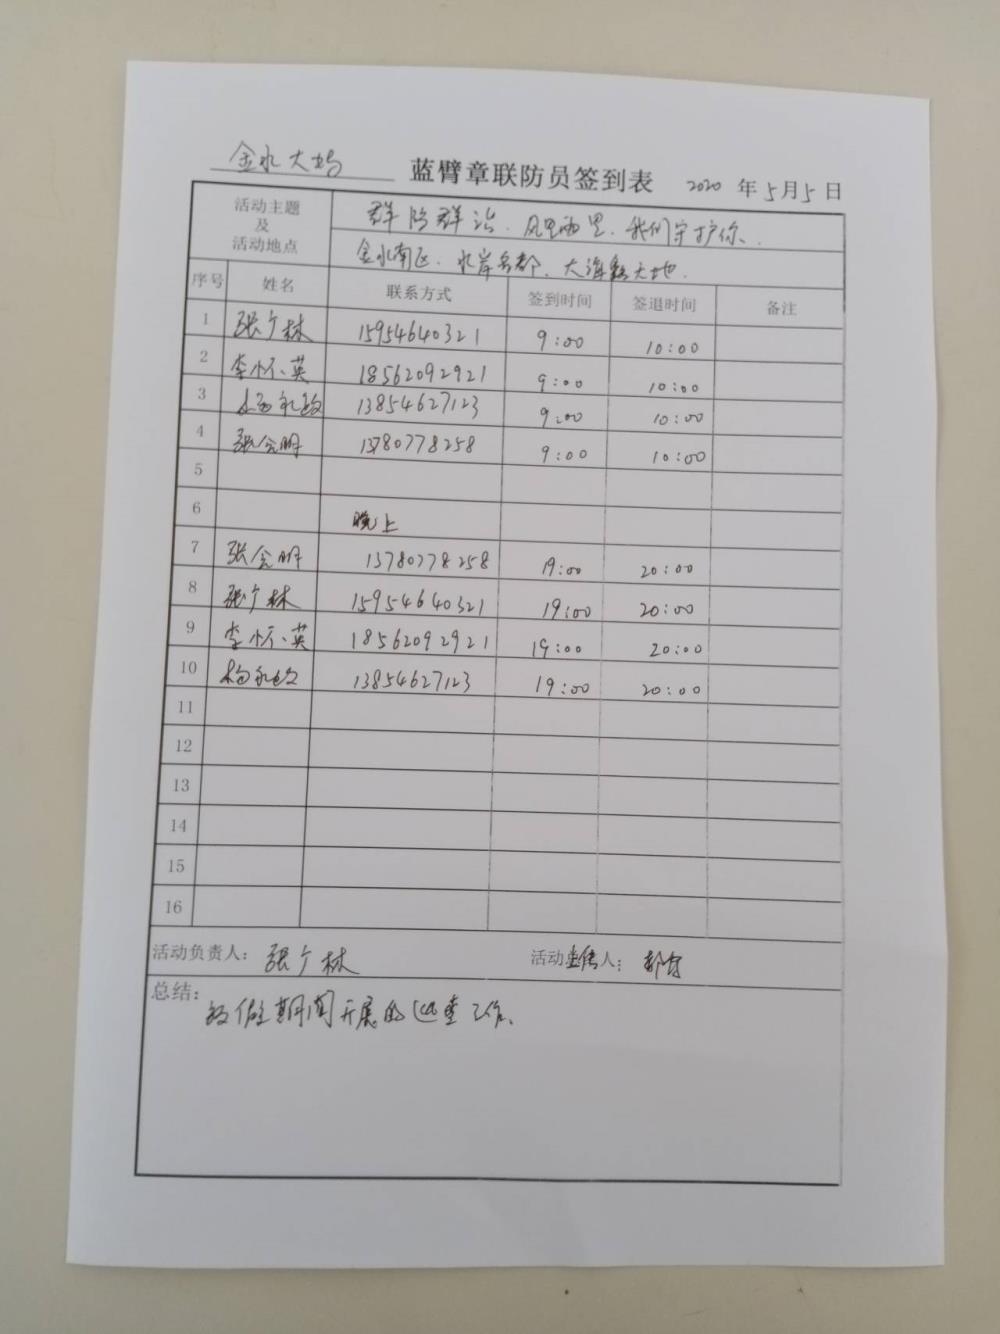 金水大坞 蓝臂章联防员签到表 2020 年 5 月 5 日
活动主题
及
活动地点
群防群治、风里雨里、我们守护你、
金水南区、水岸名都、大海 天地.
序号 姓名 联系方式 签到时间 签退时间 备注
1 张广林 15954640321 9:00 10:00
2 李怀英 18562092921 9:00 10:00
3 13854627123 9:00 10:00
4 张会明 13780778258 9:00 10:00
5
6 晚上
7 张会明 13780778258 19:00 20:00
8 张广林 15954640321 19:00 20:00
9 李怀英 18562092921 19:00 20:00
10 杨 13854627123 19:00 20:00
11
12
13
14
15
16
活动负责人： 张广林 活动 人：
总结：
假期间开展的巡查工作、